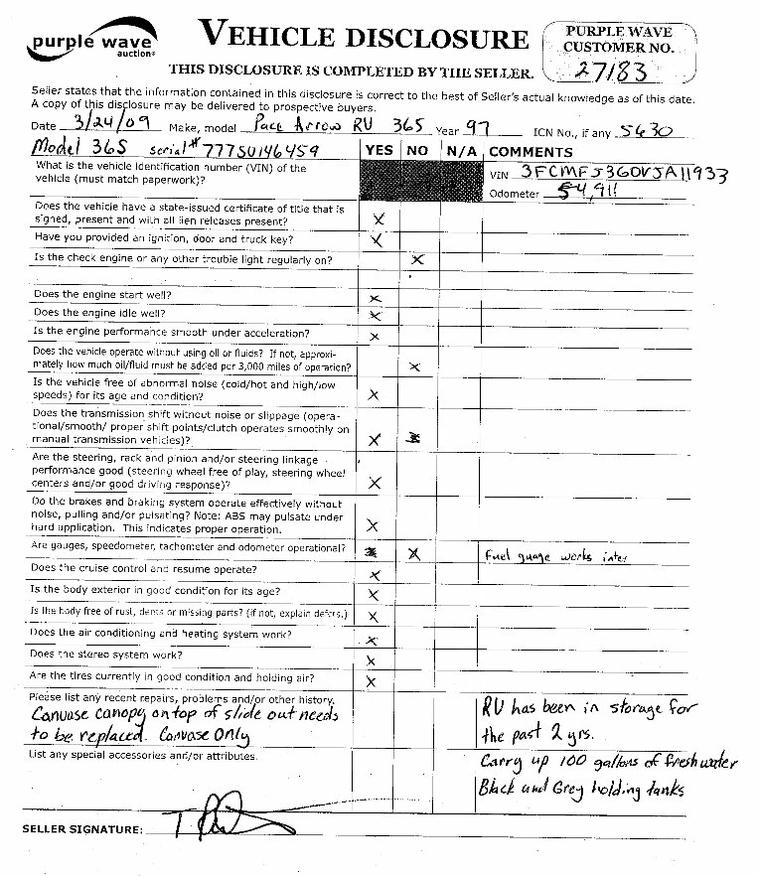 purple wave
auction®
VEHICLE DISCLOSURE
THIS DISCLOSURE IS COMPLETED BY THE SELLER.
PURPLE WAVE
CUSTOMER NO.
27183
Seller states that the information contained in this disclosure is correct to the best of Seller's actual knowledge as of this date.
A copy of this disclosure may be delivered to prospective buyers.
Date 3/24/09 Make, model Pace Arrow RV 365 Year 97 ICN No., if any 5630
Model 36S serial# 777SU146459 YES NO N/A COMMENTS
What is the vehicle identification number (VIN) of the
vehicle (must match paperwork)?
VIN 3FCMFJ3G0VJA11933
Odometer 54,911
Does the vehicle have a state-issued certificate of title that is
signed, present and with all lien releases present? X
Have you provided an ignition, door and truck key? X
Is the check engine or any other trouble light regularly on? X
Does the engine start well? X
Does the engine idle well? X
Is the engine performance smooth under acceleration? X
Does the vehicle operate without using oil or fluids? If not, approxi-
mately how much oil/fluid must be added per 3,000 miles of operation? X
Is the vehicle free of abnormal noise (cold/hot and high/low
speeds) for its age and condition? X
Does the transmission shift without noise or slippage (opera-
tional/smooth/ proper shift points/clutch operates smoothly on
manual transmission vehicles)? X
Are the steering, rack and pinion and/or steering linkage
performance good (steering wheel free of play, steering wheel
centers and/or good driving response)? X
Do the brakes and braking system operate effectively without
noise, pulling and/or pulsating? Note: ABS may pulsate under
hard application. This indicates proper operation. X
Are gauges, speedometer, tachometer and odometer operational? X Fuel guage works inter
Does the cruise control and resume operate? X
Is the body exterior in good condition for its age? X
Is the body free of rust, dents or missing parts? (if not, explain defects.) X
Does the air conditioning and heating system work? X
Does the stereo system work? X
Are the tires currently in good condition and holding air? X
Please list any recent repairs, problems and/or other history.
Canvase canopy on top of slide out needs
to be replaced. Canvase Only
RV has been in storage for
the past 2 yrs.
List any special accessories and/or attributes.
Carry up 100 gallons of fresh water
Black and Grey holding tanks
SELLER SIGNATURE: